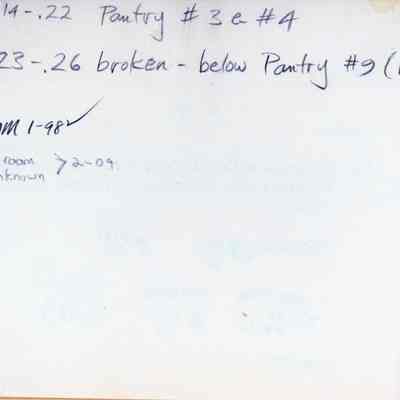 14-.22 Pantry # 3 & #4
23-.26 broken - below Pantry #9 (
M 1-98 ✓
room > 2-09.
nknown